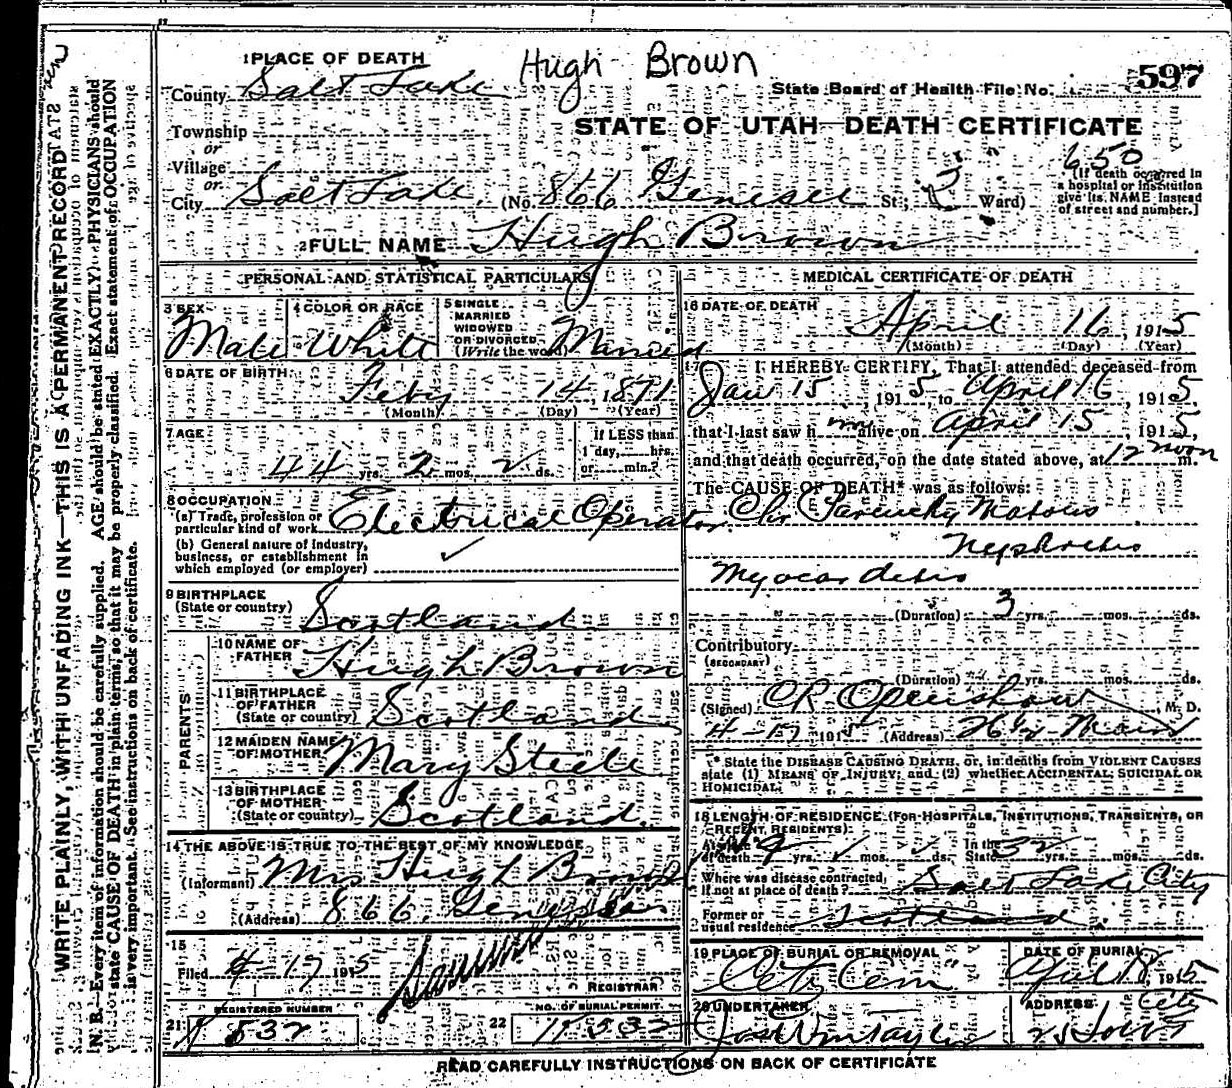 Hugh Brown
1 PLACE OF DEATH
County Salt Lake
State Board of Health File No. 597
STATE OF UTAH—DEATH CERTIFICATE
Township
or
Village
or
City Salt Lake (No. 866 Genesee St.; Ward)
650
[If death occurred in a hospital or institution give its NAME instead of street and number.]
2 FULL NAME Hugh Brown
PERSONAL AND STATISTICAL PARTICULARS
3 SEX Male
4 COLOR OR RACE White
5 SINGLE MARRIED WIDOWED OR DIVORCED (Write the word) Married
6 DATE OF BIRTH Feby 14, 1871
(Month) (Day) (Year)
7 AGE 44 yrs. 2 mos. 2 ds.
If LESS than 1 day, hrs. or min.?
8 OCCUPATION
(a) Trade, profession or particular kind of work Electrical Operator
(b) General nature of industry, business, or establishment in which employed (or employer)
9 BIRTHPLACE (State or country) Scotland
PARENTS
10 NAME OF FATHER Hugh Brown
11 BIRTHPLACE OF FATHER (State or country) Scotland
12 MAIDEN NAME OF MOTHER Mary Steele
13 BIRTHPLACE OF MOTHER (State or country) Scotland
14 THE ABOVE IS TRUE TO THE BEST OF MY KNOWLEDGE
(Informant) Mrs Hugh Brown
(Address) 866
15
Filed 4-17 1915
REGISTRAR
REGISTERED NUMBER
21 532
NO. OF BURIAL PERMIT
22
MEDICAL CERTIFICATE OF DEATH
16 DATE OF DEATH April 16, 1915
(Month) (Day) (Year)
17 I HEREBY CERTIFY, That I attended deceased from
Jan 15 1915 to April 16, 1915,
that I last saw h im alive on April 15, 1915,
and that death occurred, on the date stated above, at 12 noon m.
The CAUSE OF DEATH* was as follows:
Chr Parenchymatous
Nephritis
Myocardetis
(Duration) 3 yrs. mos. ds.
Contributory
(SECONDARY)
(Duration) yrs. mos. ds.
(Signed) CR Openshaw, M. D.
4-17 1915 (Address) Main
* State the DISEASE CAUSING DEATH, or, in deaths from VIOLENT CAUSES state (1) MEANS OF INJURY; and (2) whether ACCIDENTAL, SUICIDAL OR HOMICIDAL.
18 LENGTH OF RESIDENCE (FOR HOSPITALS, INSTITUTIONS, TRANSIENTS, OR RECENT RESIDENTS)
At place of death yrs. mos. ds. In the State 32 yrs. mos. ds.
Where was disease contracted, if not at place of death? Salt Lake City
Former or usual residence Scotland
19 PLACE OF BURIAL OR REMOVAL City Cem
DATE OF BURIAL April 18, 1915
20 UNDERTAKER Jos Wm Taylor
ADDRESS City
READ CAREFULLY INSTRUCTIONS ON BACK OF CERTIFICATE
WRITE PLAINLY, WITH UNFADING INK—THIS IS A PERMANENT RECORD
N. B.—Every item of information should be carefully supplied. AGE should be stated EXACTLY. PHYSICIANS should
state CAUSE OF DEATH in plain terms, so that it may be properly classified. Exact statement of OCCUPATION
is very important. See instructions on back of certificate.